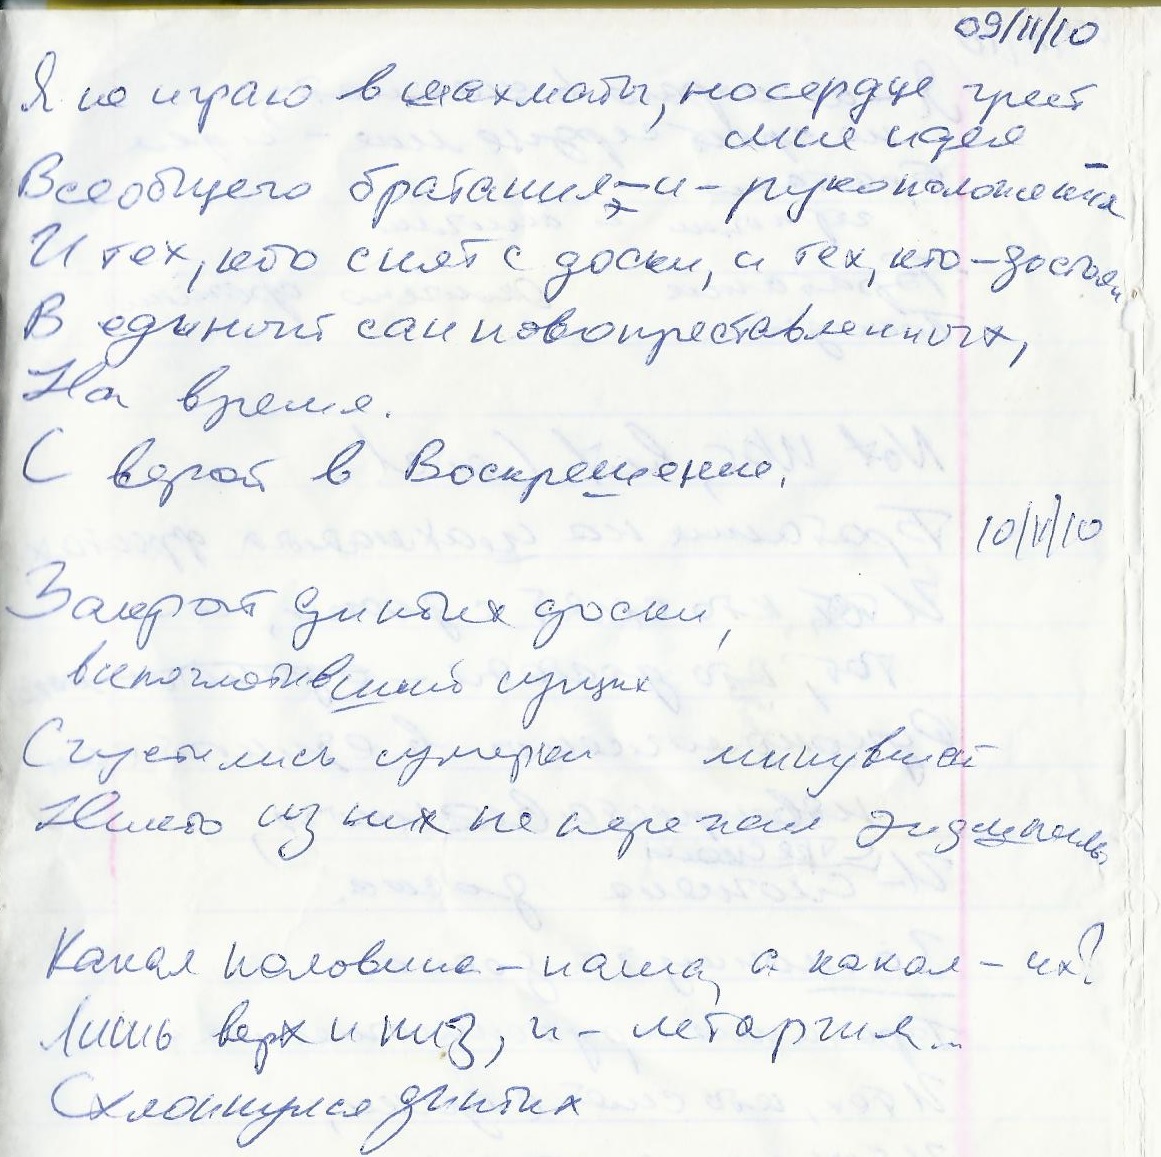 09/11/10
Я не играю в шахматы, но сердце греет
мне идея
Всеобщего братания – и – рукоположения
И тех, кто снят с доски, и тех, кто – достоин
В единый сан новопреставленных,
На время.
С верой в Воскрешение.
10/11/10
Закрыт диптих доски,
впоглотивший сущих
Сгустились сумерки минувшей
Никто из них не пережил
Какая половина – наша, а какая – их?
Лишь верх и низ, и – летаргия...
Схлопнулся диптих